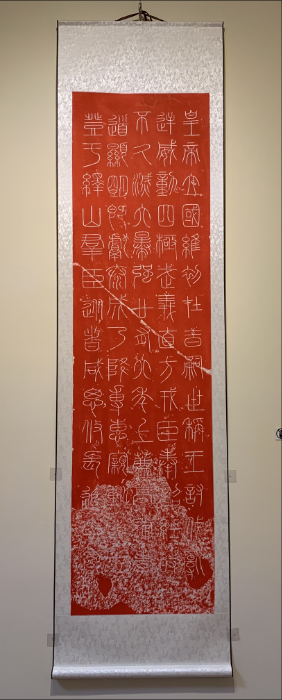 皇帝立國維初在昔嗣世稱王討伐亂
逆威動四極武義直方戎臣奉詔經時
不久滅六暴強廿有六年上薦高號
道顯明既獻泰成乃降專惠寴巡
登于繹山羣臣從者咸思攸長追